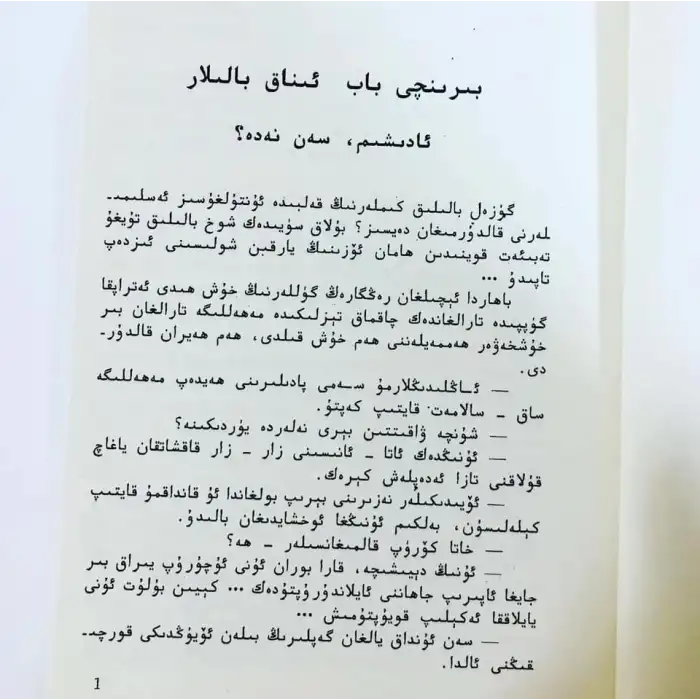 بىرىنچى باب ئىناق بالىلار
ئادىشىم، سەن نەدە؟
گۈزەل بالىلىق كىملەرنىڭ قەلبىدە ئۇنتۇلغۇسىز ئەسلىمىـ
لەرنى قالدۇرمىغان دەيسىز؟ بۇلاق سۈيىدەك شوخ بالىلىق تۇيغۇ
تەبىئەت قوينىدىن ھامان ئۆزىنىڭ يارقىن شولىسىنى ئىزدەپ
تاپىدۇ ...
باھاردا ئېچىلغان رەڭگارەڭ گۈللەرنىڭ خۇش ھىدى ئەتراپقا
گۈپپىدە تارالغاندەك چاقماق تېزلىكىدە مەھەللىگە تارالغان بىر
خۇشخەۋەر ھەممەيلەننى ھەم خۇش قىلدى، ھەم ھەيران قالدۇرـ
دى.
— ئاڭلىدىڭلارمۇ سەمى پادىلىرىنى ھەيدەپ مەھەللىگە
ساق - سالامەت قايتىپ كەپتۇ.
— شۇنچە ۋاقىتتىن بېرى نەلەردە يۈردىكىنە؟
— ئۇنىڭدەك ئاتا - ئانىسىنى زار - زار قاقشاتقان ياغاچ
قۇلاقنى تازا ئەدەپلەش كېرەك.
— ئۆيىدىكىلەر نەزىرىنى بېرىپ بولغاندا ئۇ قانداقمۇ قايتىپ
كېلەلىسۇن، بەلكىم ئۇنىڭغا ئوخشايدىغان بالىدۇ.
— خاتا كۆرۈپ قالمىغانسىلەر - ھە؟
— ئۇنىڭ دېيىشىچە، قارا بوران ئۇنى ئۇچۇرۇپ يىراق بىر
جايغا ئاپىرىپ جاھاننى ئايلاندۇرۇپتۇدەك ... كېيىن بۇلۇت ئۇنى
يايلاققا ئەكېلىپ قويۇپتۇمىش ...
— سەن ئۇنداق يالغان گەپلىرىڭ بىلەن ئۆيۈڭدىكى قورچـ
قىڭنى ئالدا.
1